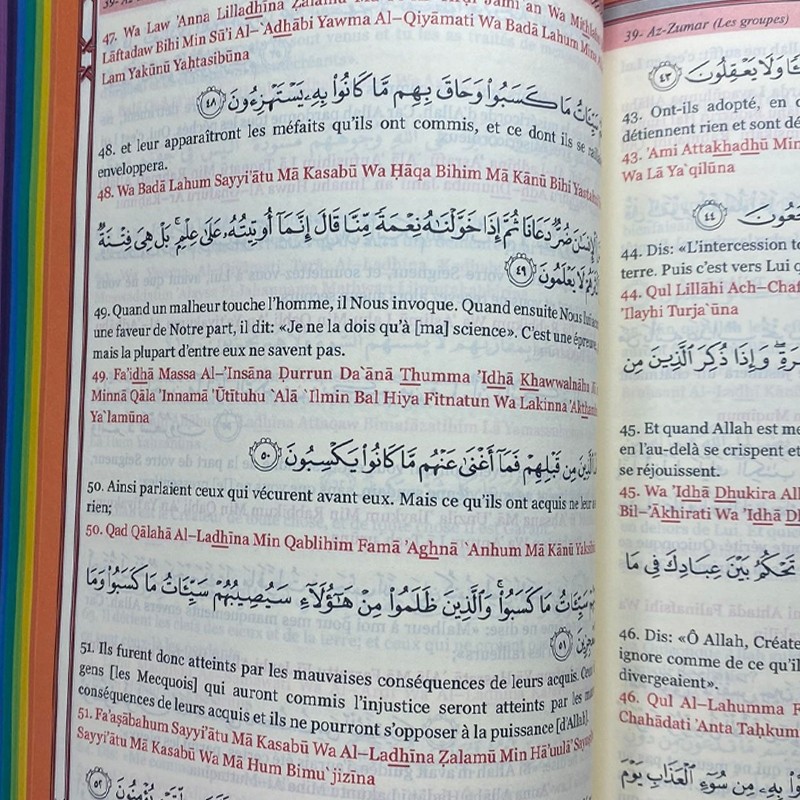 39- Az-Zumar (Les groupes)
47. Wa Law 'Anna Lilladhīna Žalamū
Lāftadaw Bihi Min Sū'i Al-`Adhābi Yawma Al-Qiyāmati Wa Badā Lahum Mina
Lam Yakūnū Yaĥtasibūna
مَّا كَسَبُوا۟ وَحَاقَ بِهِم مَّا كَانُوا۟ بِهِۦ يَسْتَهْزِءُونَ ٤٨
48. et leur apparaîtront les méfaits qu'ils ont commis, et ce dont ils se
enveloppera.
48. Wa Badā Lahum Sayyi'ātu Mā Kasabū Wa Ĥāqa Bihim Mā Kānū Bihi
ضُرٌّ دَعَانَا ثُمَّ إِذَا خَوَّلْنَٰهُ نِعْمَةً مِّنَّا قَالَ إِنَّمَآ أُوتِيتُهُۥ عَلَىٰ عِلْمٍۭ ۚ بَلْ هِىَ فِتْنَةٌ
لَا يَعْلَمُونَ ٤٩
49. Quand un malheur touche l'homme, il Nous invoque. Quand ensuite Nous
une faveur de Notre part, il dit: «Je ne la dois qu'à [ma] science». C'est une épreuve,
mais la plupart d'entre eux ne savent pas.
49. Fa'idhā Massa Al-'Insāna Đurrun Da`ānā Thumma 'Idhā Khawwalnāhu
Minnā Qāla 'Innamā 'Ūtītuhu `Alá `Ilmin Bal Hiya Fitnatun Wa Lakinna
Ya`lamūna
ٱلَّذِينَ مِن قَبْلِهِمْ فَمَآ أَغْنَىٰ عَنْهُم مَّا كَانُوا۟ يَكْسِبُونَ ٥٠
50. Ainsi parlaient ceux qui vécurent avant eux. Mais ce qu'ils ont acquis ne leur
rien;
50. Qad Qālahā Al-Ladhīna Min Qablihim Famā 'Aghná `Anhum Mā Kānū
سَيِّـَٔاتُ مَا كَسَبُوا۟ ۚ وَٱلَّذِينَ ظَلَمُوا۟ مِنْ هَٰٓؤُلَآءِ سَيُصِيبُهُمْ سَيِّـَٔاتُ مَا كَسَبُوا۟ وَمَا
٥١
51. Ils furent donc atteints par les mauvaises conséquences de leurs acquis.
gens [les Mecquois] qui auront commis l'injustice seront atteints par les
conséquences de leurs acquis et ils ne pourront s'opposer à la puissance [d'Allah].
51. Fa'aşābahum Sayyi'ātu Mā Kasabū Wa Al-Ladhīna Žalamū Min Hā'uulā'
Sayyi'ātu Mā Kasabū Wa Mā Hum Bimu`jizīna
٥٢
39- Az-Zumar (Les groupes)
وَلَا يَعْقِلُونَ ٤٣
43. Ont-ils adopté, en
détiennent rien et sont
43. 'Ami Attakhadhū Min
Wa Lā Ya`qilūna
٤٤
44. Dis: «L'intercession
terre. Puis c'est vers Lui
44. Qul Lillāhi Ach-Chaf
'Ilayhi Turja`ūna
وَإِذَا ذُكِرَ ٱلَّذِينَ مِن
45. Et quand Allah est
en l'au-delà se crispent et
se réjouissent.
45. Wa 'Idhā Dhukira
Bil-'Ākhirati Wa 'Idhā
تَحْكُمُ بَيْنَ عِبَادِكَ فِى مَا
46. Dis: «Ô Allah,
ignore comme de ce
divergeaient».
46. Qul Al-Lahumma
Chahādati 'Anta Taĥkum
بِهِۦ مِن سُوٓءِ ٱلْعَذَابِ يَوْمَ